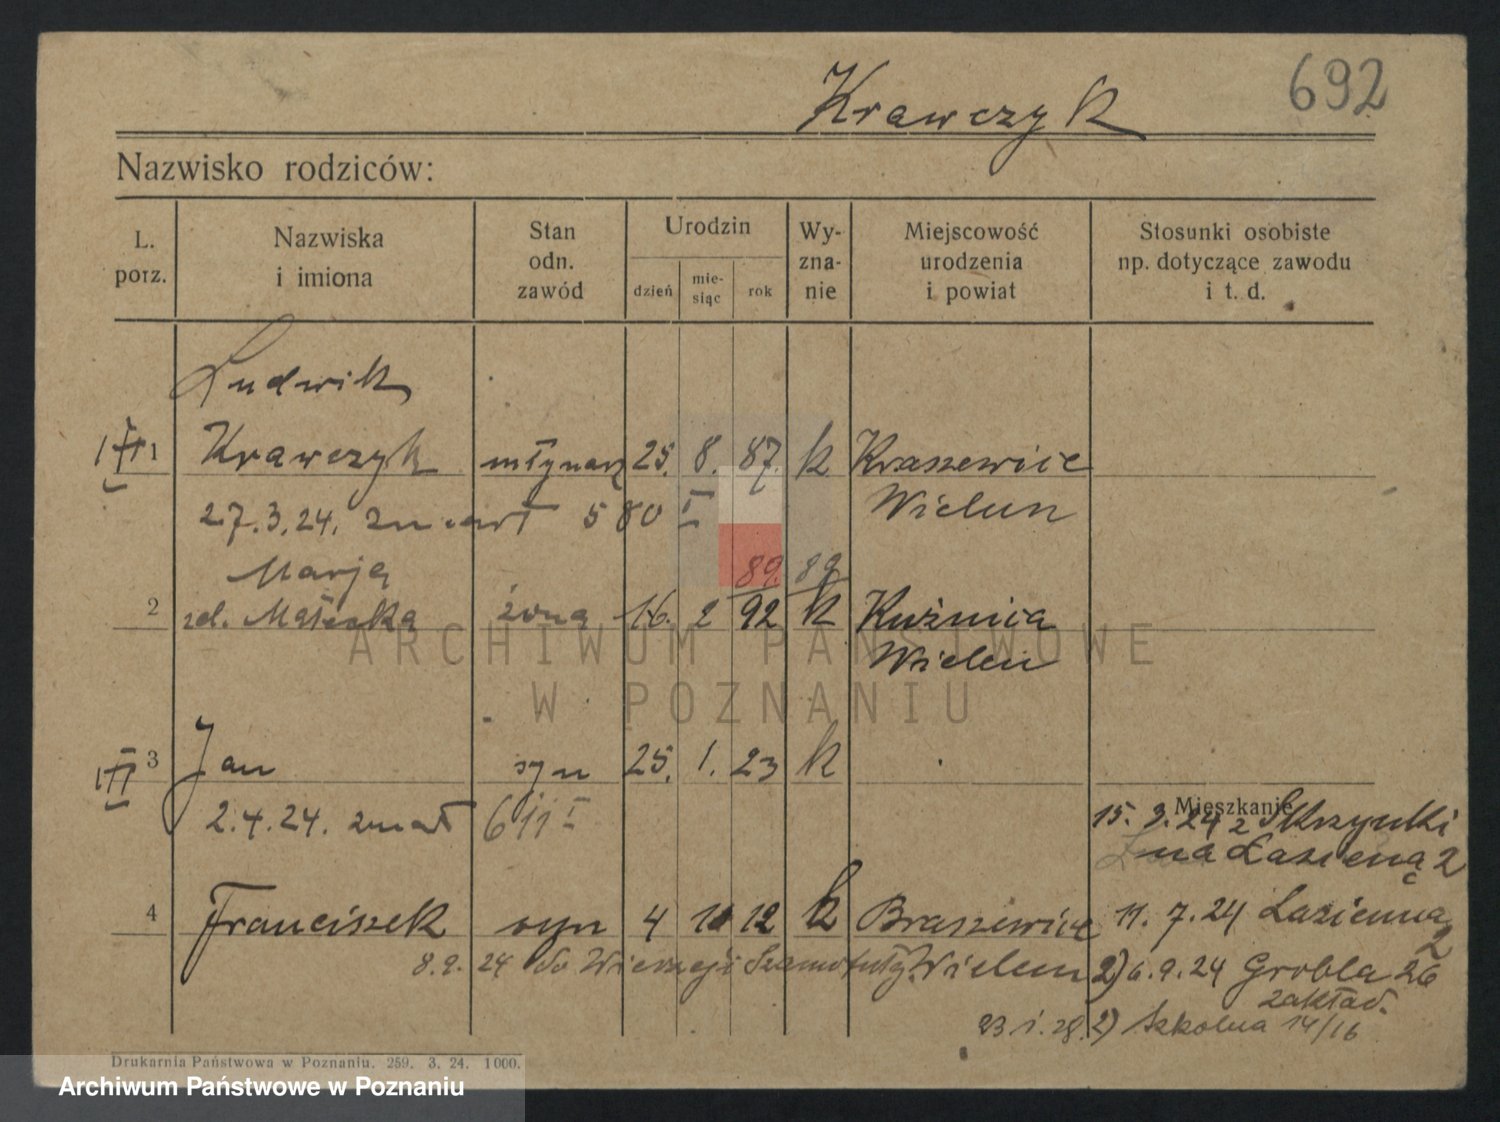 692
Krawczyk
Nazwisko rodziców:
L. porz.
Nazwiska i imiona
Stan odn. zawód
Urodzin
dzień
mie- siąc
rok
Wy- zna- nie
Miejscowość urodzenia i powiat
Stosunki osobiste np. dotyczące zawodu i t. d.
Ludwik
1 Krawczyk młynarz 25. 8. 87. k Kraszewice
27.3.24. zmarł 580 I Wielun
Marja 89. 89
2 zd. Małecka żona 16. 2 92 k Kuźnica
Wielun
3 Jan syn 25. 1. 23 k
Mieszkanie
2.4.24. zmarł 611 I
15. 3. 24 z Skrzynki
na Łazienną 2
4 Franciszek syn 4 10 12 k Braszewice 11. 7. 24 Łazienna 2
8.9.24 do Szamotuły Wielun 2) 6.9.24 Grobla 26
zakład.
23 1. 28. 2) Szkolna 14/16
Drukarnia Państwowa w Poznaniu. 259. 3. 24. 1000.
ARCHIWUM PAŃSTWOWE
W POZNANIU
Archiwum Państwowe w Poznaniu